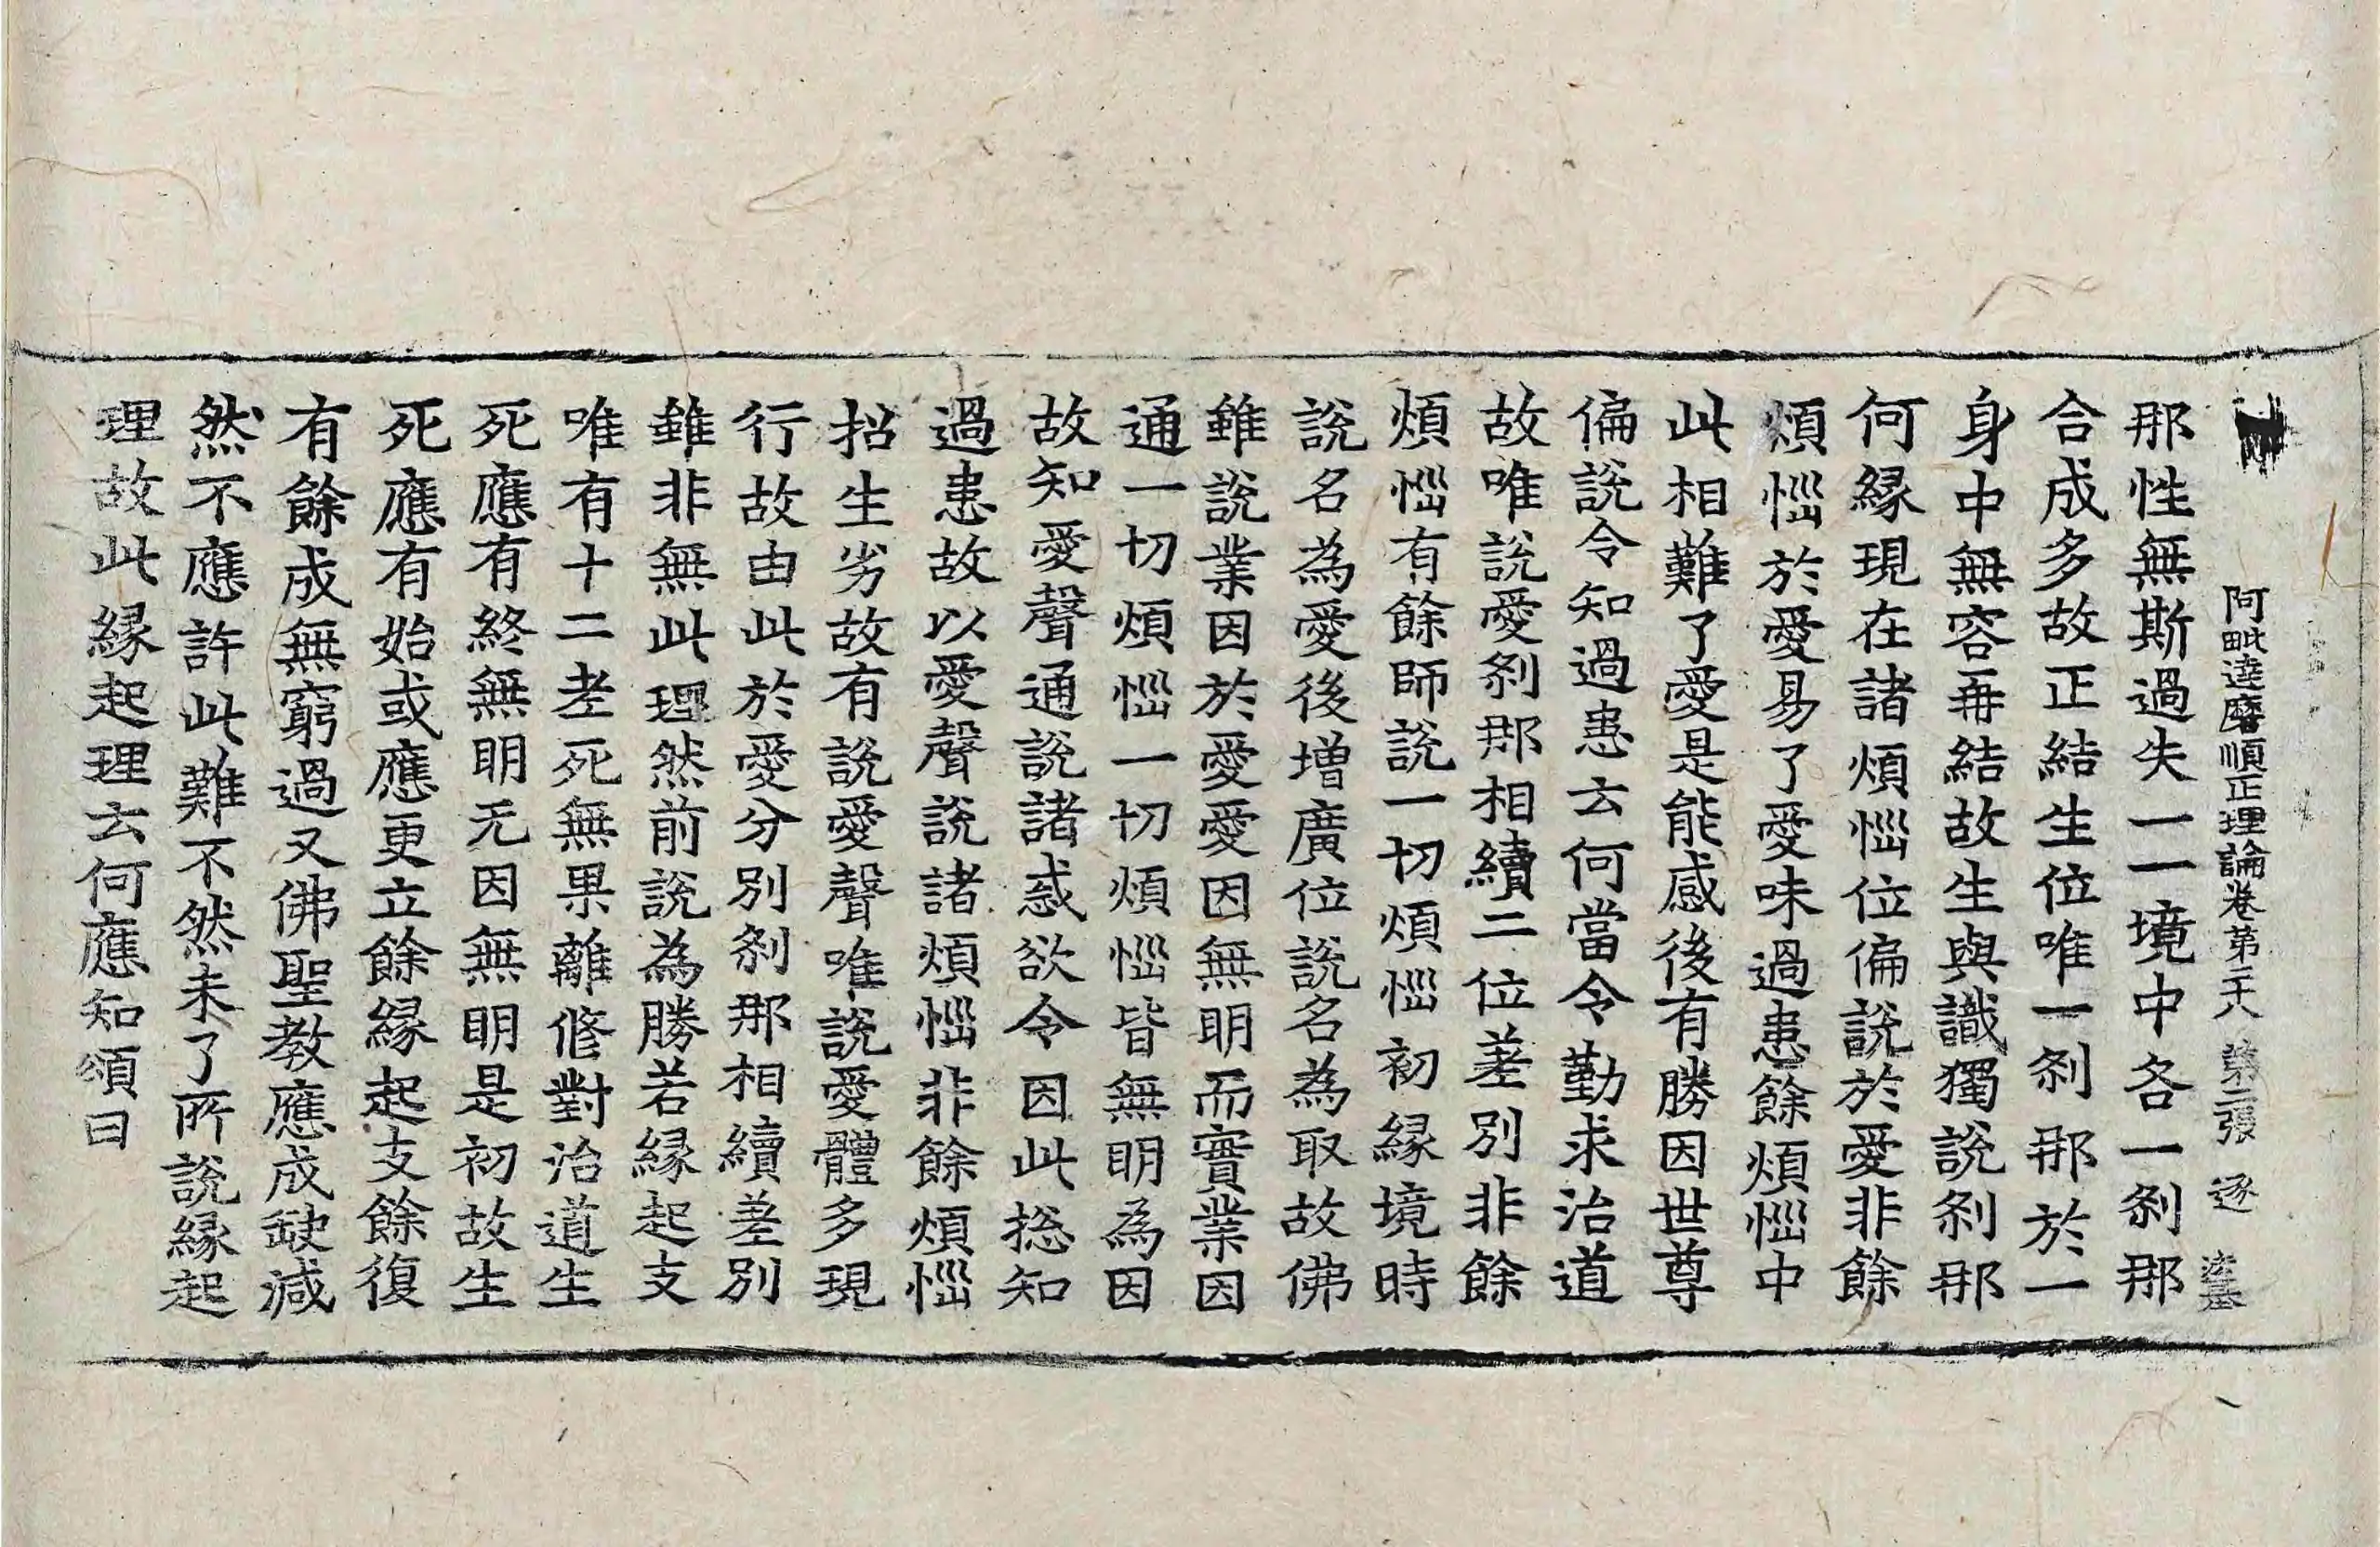 阿毗達磨順正理論卷第二十八 第二張 逐
那性無斯過失一一境中各一刹那
合成多故正結生位唯一刹那於一
身中無容再結故生與識獨說刹那
何緣現在諸煩惱位偏說於愛非餘
煩惱於愛易了愛味過患餘煩惱中
此相難了愛是能感後有勝因世尊
偏說令知過患云何當令勤求治道
故唯說愛刹那相續二位差別非餘
煩惱有餘師說一切煩惱初緣境時
說名為愛後增廣位說名為取故佛
雖說業因於愛愛因無明而實業因
通一切煩惱一切煩惱皆無明為因
故知愛聲通說諸惑欲令因此揔知
過患故以愛聲說諸煩惱非餘煩惱
招生劣故有說愛聲唯說愛體多現
行故由此於愛分別刹那相續差別
雖非無此理然前說為勝若緣起支
唯有十二老死無果離修對治道生
死應有終無明无因無明是初故生
死應有始或應更立餘緣起支餘復
有餘成無窮過又佛聖教應成缺減
然不應許此難不然未了所說緣起
理故此緣起理云何應知頌曰